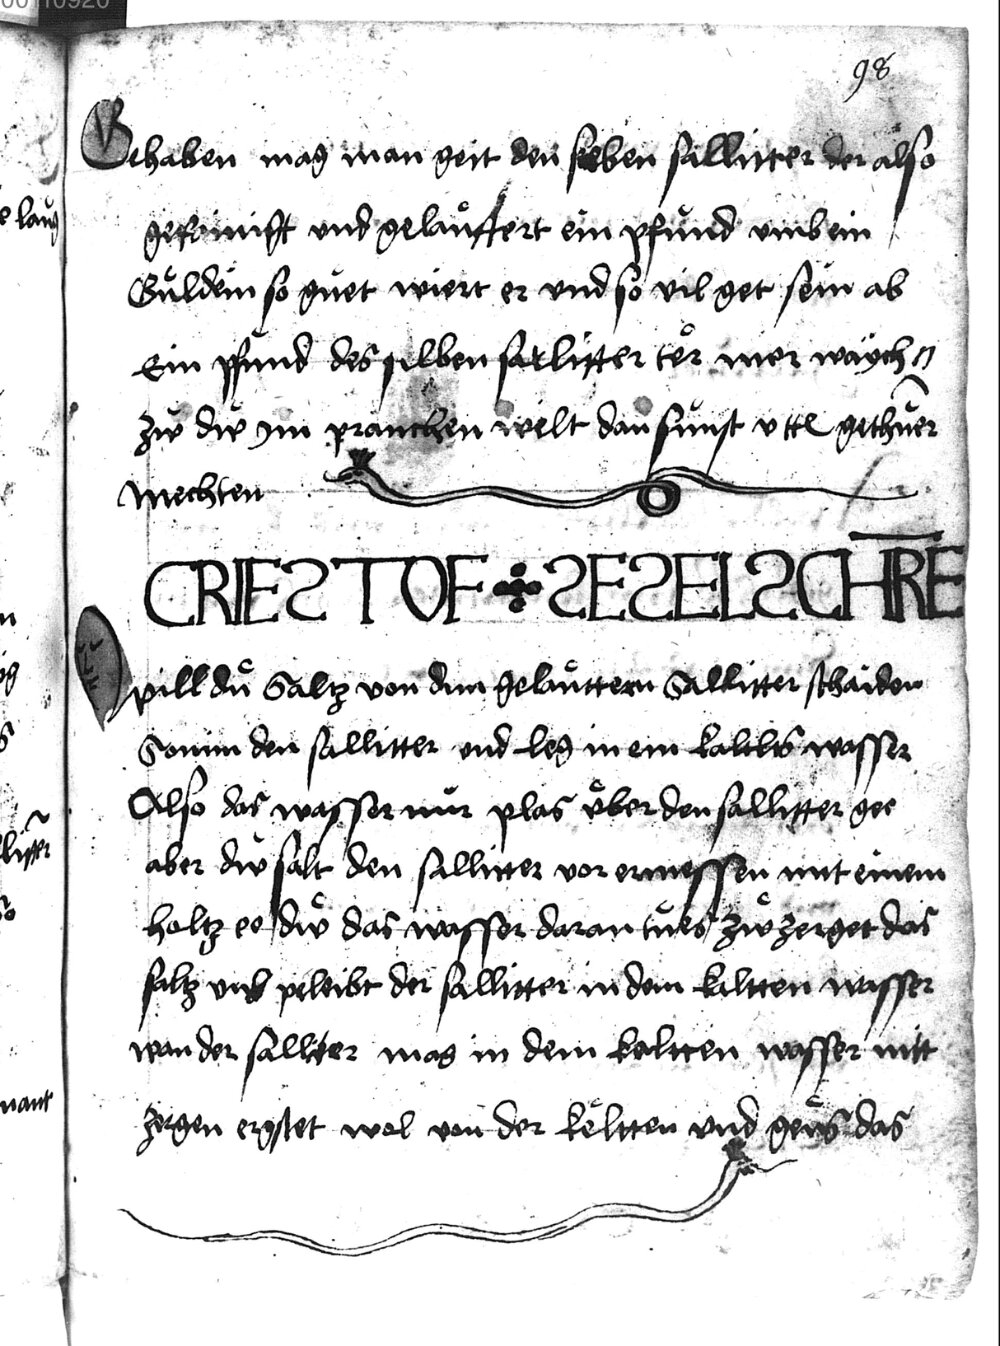 98
Gehaben mag man geit den selben sallitter der also
gefrimist und gelaüttert ein pfund umb ein
Gulden so guet wiert er und so vil get sein ab
Ein pfund des selben sallitter ter mer
zw dw im prauchen welt dan sunst
mechten
CRIESTOF SESELSCHRE
vill du Saltz von dem gelaüttern Sallitter schaiden
So nim den sallitter und leg in ein kaltts wasser
Also das wasser nür plas über den sallitter gee
aber dw salt den sallitter vor ermessen mit einem
holtz ee dw das wasser daran tues zw zerget das
saltz und peleibt der sallitter in dem kaltten wasser
wan der sallitter mag in dem keltten wasser nitt
zergen er gstet wol von der keltten und geus das